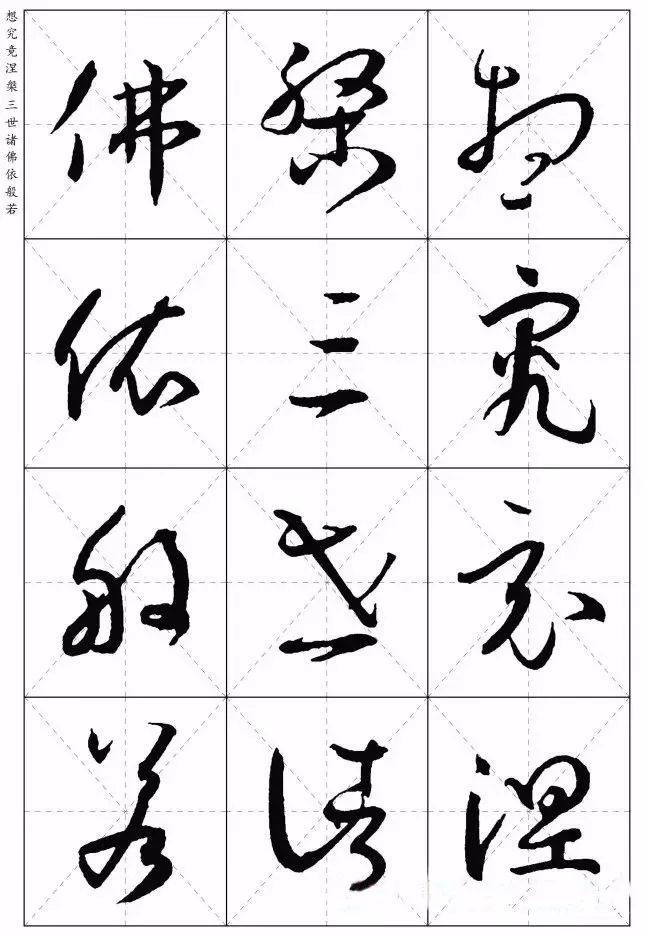 想究竟涅槃三世诸佛依般若
想究竟涅
槃三世诸
佛依般若